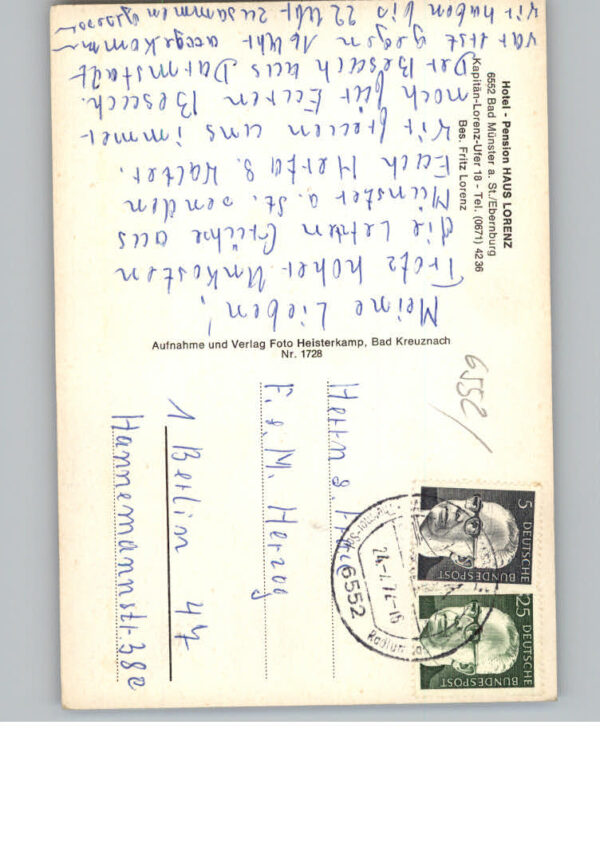 Hotel - Pension HAUS LORENZ
6552 Bad Münster a. St./Ebernburg
Kapitän-Lorenz-Ufer 18 - Tel. (0671) 42 36
Bes. Fritz Lorenz
Meine Lieben!
Trotz hoher Unkosten
die letzten Grüße aus
Münster a. St. senden
Euch Herta & Walter.
Wir freuen uns immer
noch für Euren Besuch.
Der Besuch aus Darmstadt
war erst gegen 16 Uhr
wir haben bis 22 Uhr zusammen
Aufnahme und Verlag Foto Heisterkamp, Bad Kreuznach
Nr. 1728
6552
5
DEUTSCHE
BUNDESPOST
25
DEUTSCHE
BUNDESPOST
6552
Herrn &
E. & M. Herzog
1 Berlin 47
Hannemannstr. 38a